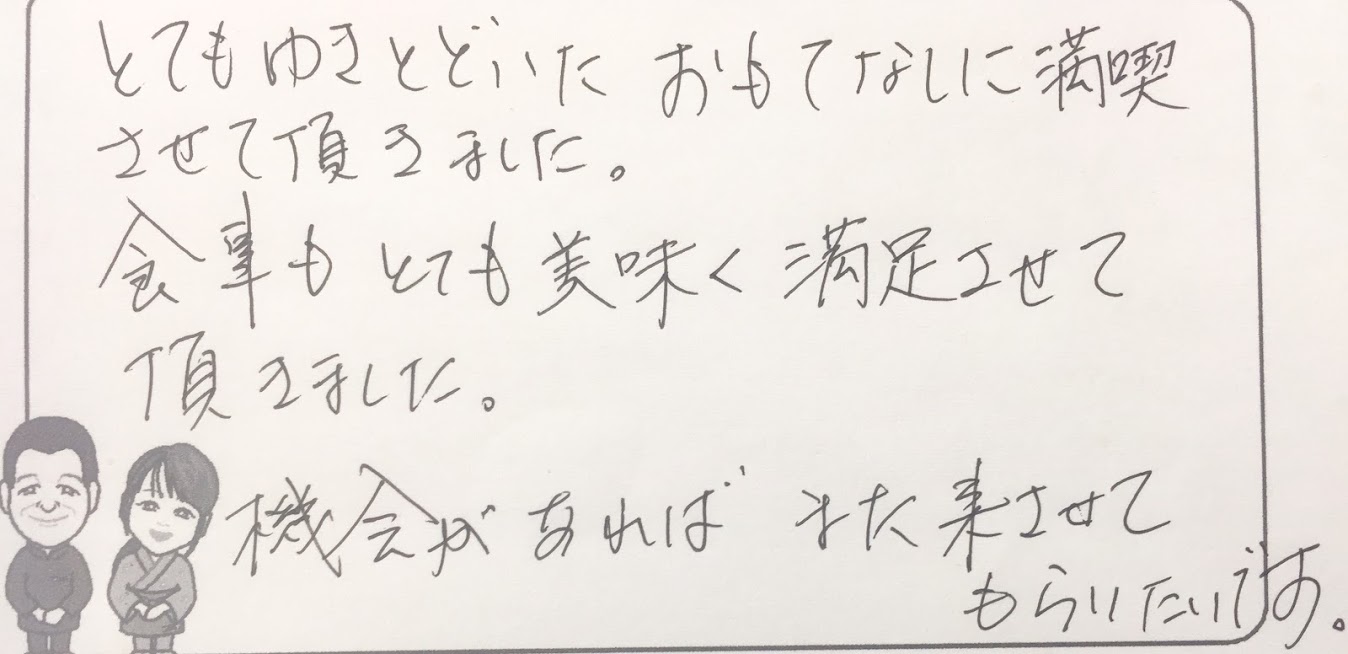 とてもゆきとどいた おもてなしに満喫
させて頂きました。
食事も とても美味く 満足させて
頂きました。
機会が あれば また来させて
もらいたいです。